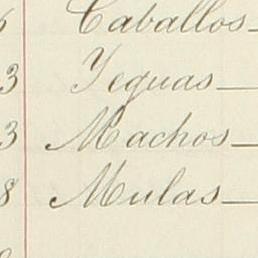 Caballos
3 Yeguas
3 Machos
8 Mulas